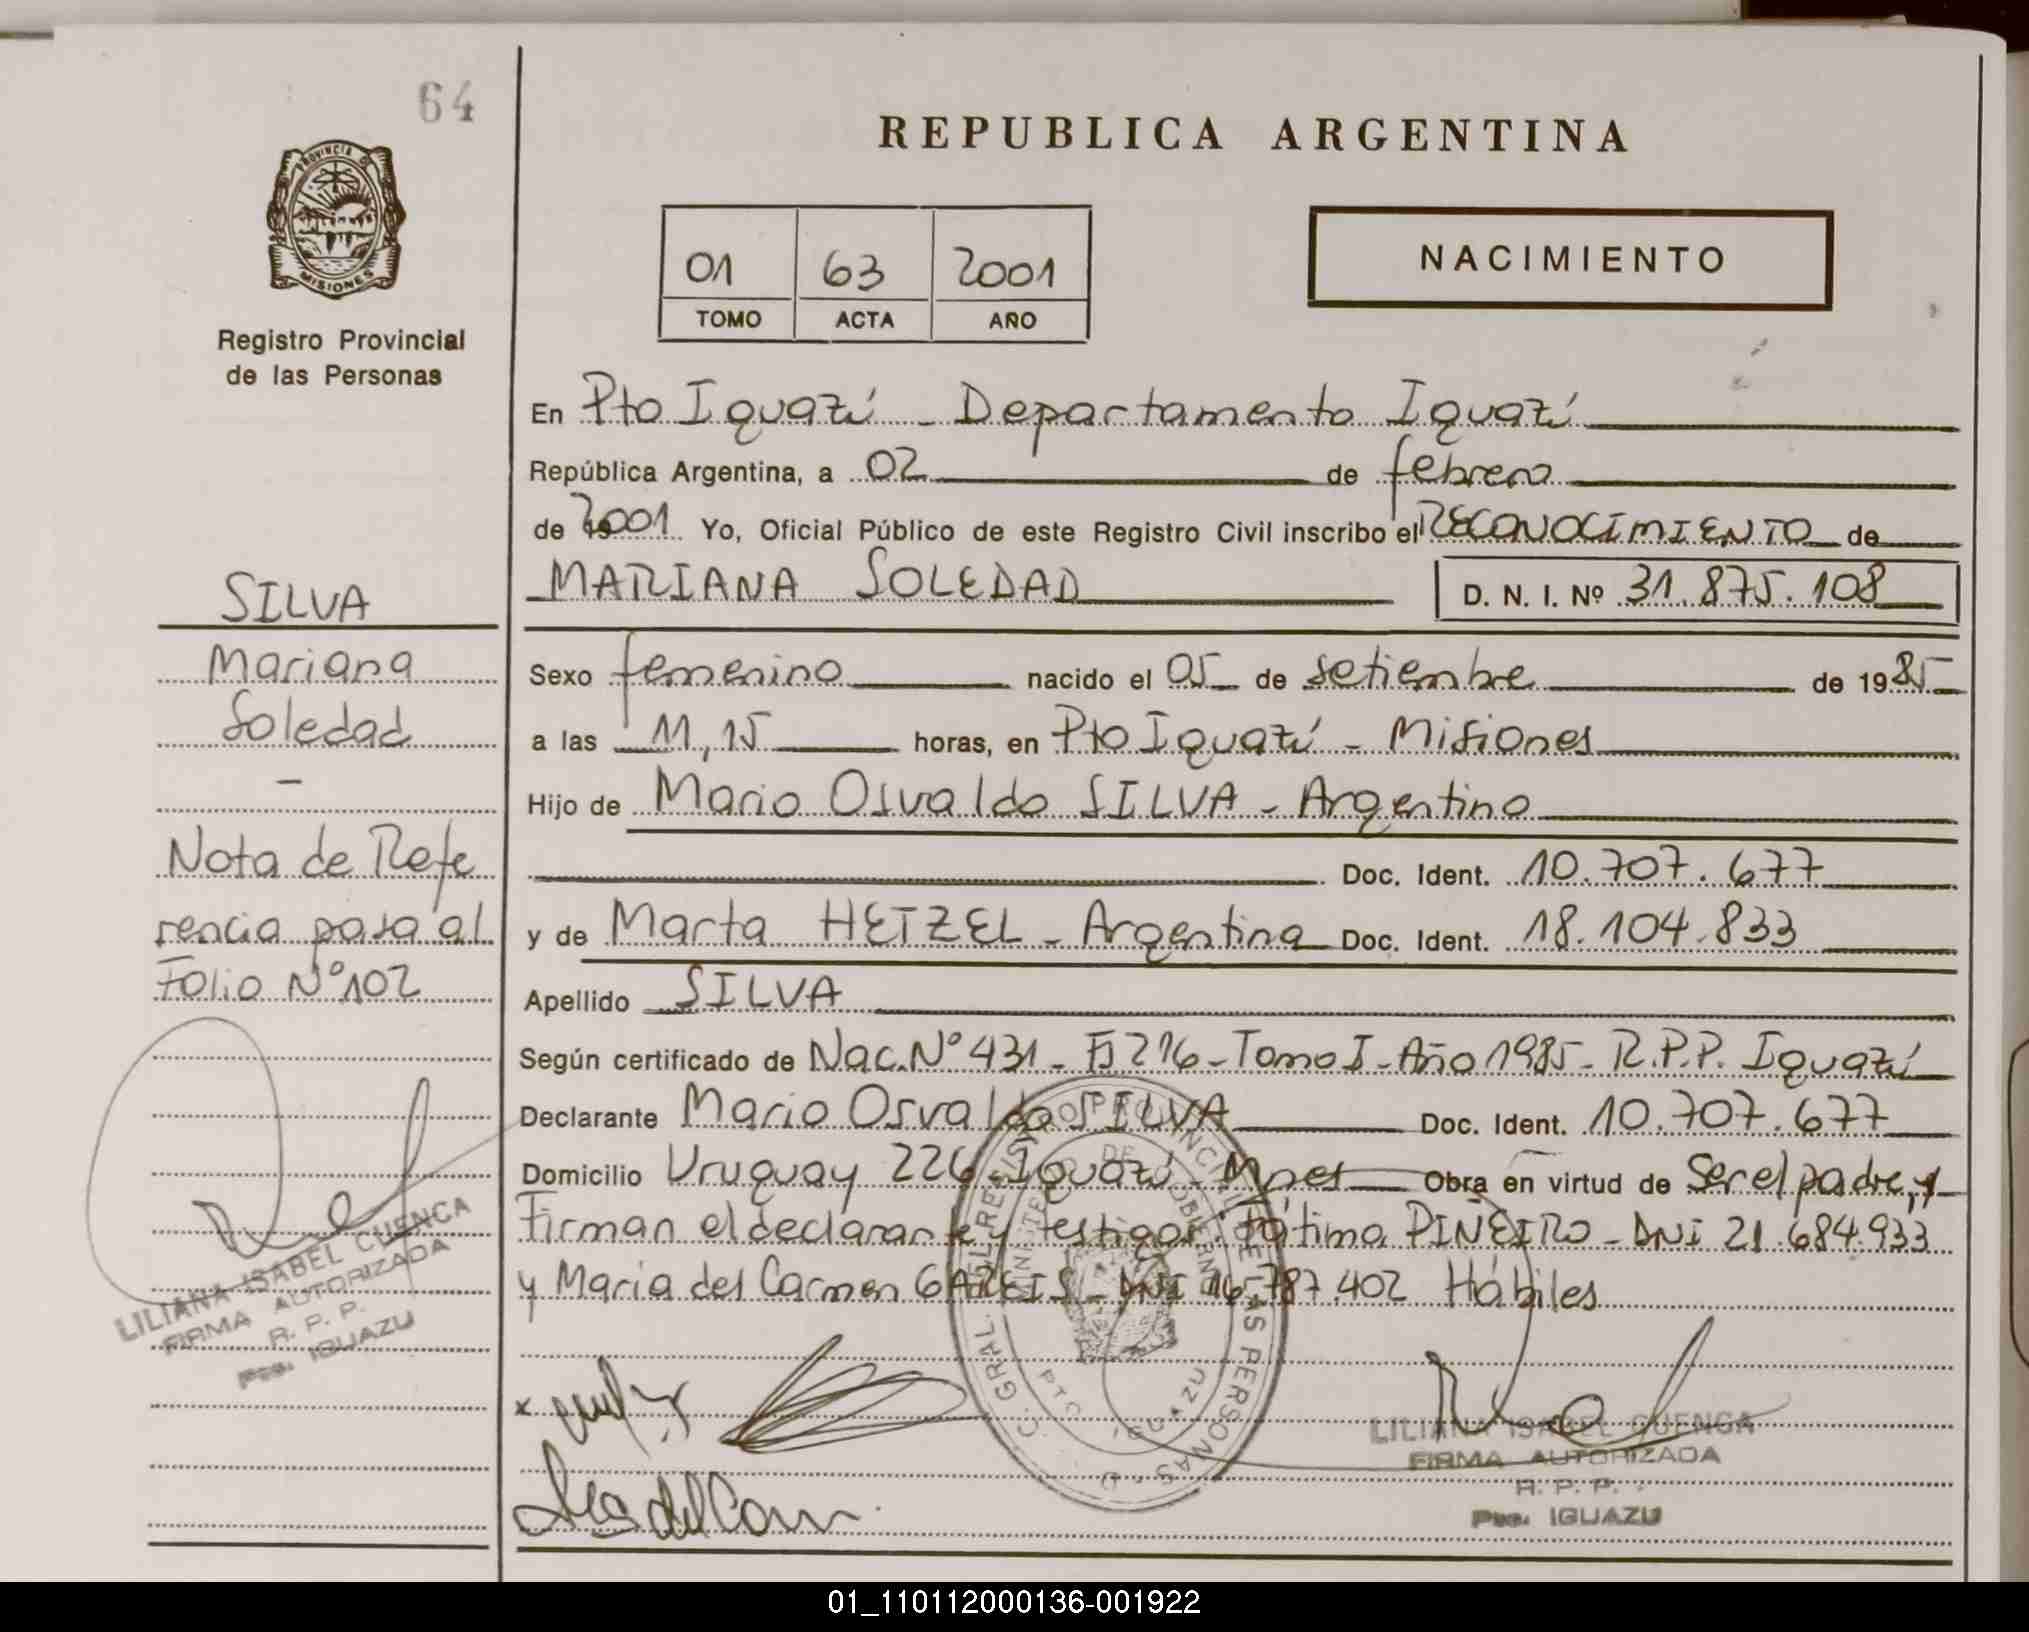 64
PROVINCIA DE
MISIONES
Registro Provincial
de las Personas
REPUBLICA ARGENTINA
01 63 2001
TOMO ACTA AÑO
NACIMIENTO
En Pto Iguazú - Departamento Iguazú
República Argentina, a 02 de febrero
de 2001 Yo, Oficial Público de este Registro Civil inscribo el RECONOCIMIENTO de
MARIANA SOLEDAD D. N. I. Nº 31.875.108
Sexo femenino nacido el 05 de setiembre de 1985
a las 11,15 horas, en Pto Iguazú - Misiones
Hijo de Mario Osvaldo SILVA - Argentino
Doc. Ident. 10.707.677
y de Marta HETZEL - Argentina Doc. Ident. 18.104.833
Apellido SILVA
Según certificado de Nac. Nº 431 - Fº 216 - Tomo I - Año 1985 - R.P.P. Iguazú
Declarante Mario Osvaldo SILVA Doc. Ident. 10.707.677
Domicilio Uruguay 226 - Iguazú - Mnes Obra en virtud de Ser el padre, y
Firman el declarante y testigos: Fátima PIÑEIRO - DNI 21.684.933
y Maria del Carmen GAREIS - DNI 16.787.402 Hábiles
SILVA
Mariana
Soledad
-
Nota de Refe
rencia pasa al
Folio Nº 102
LILIANA ISABEL CUENCA
FIRMA AUTORIZADA
R. P. P.
Pto. IGUAZU
LILIANA ISABEL CUENCA
FIRMA AUTORIZADA
R. P. P.
Pto. IGUAZU
01_110112000136-001922